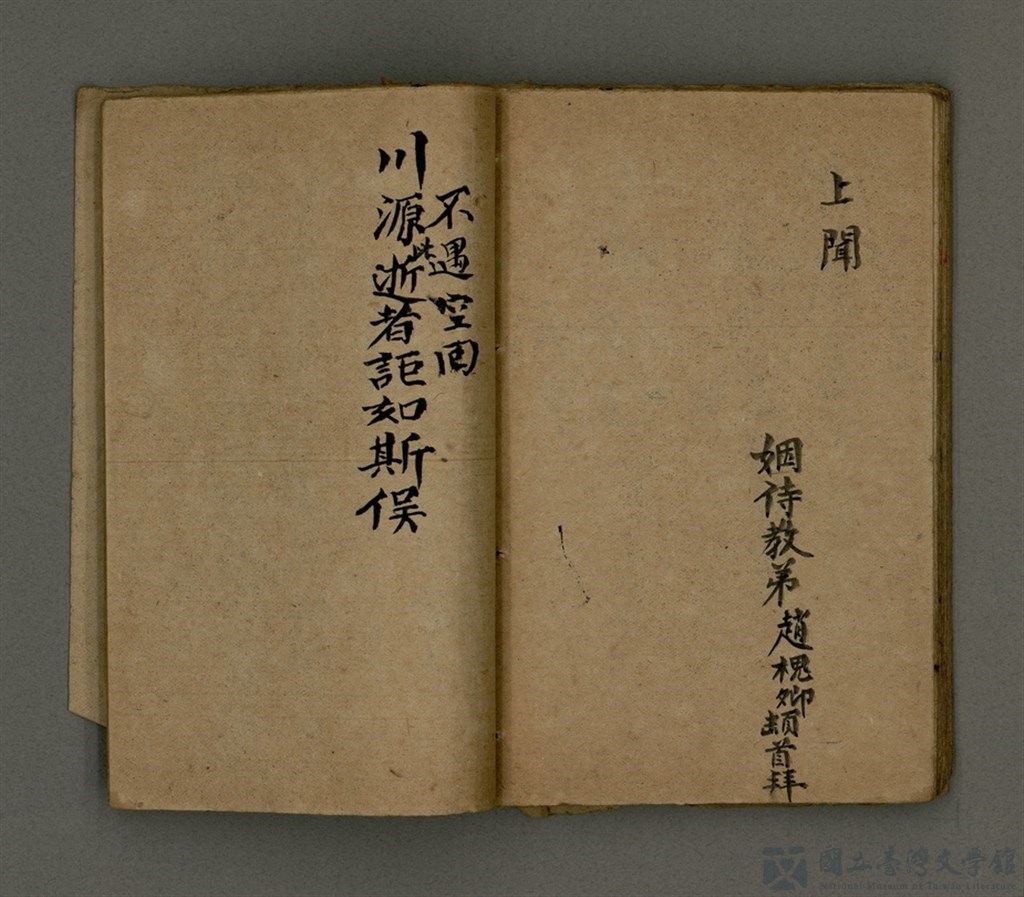 上聞
姻侍教弟趙槐卿頓首拜
不遇空回
川源逝者詎如斯俁
些
國立臺灣文學館
National Museum of Taiwan Literature